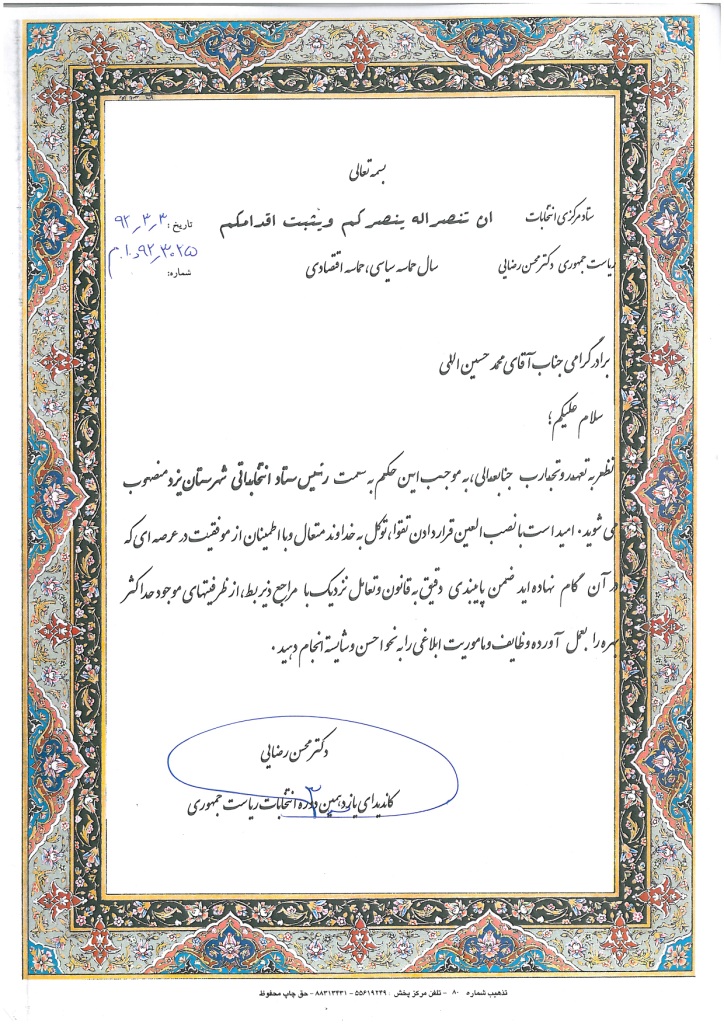 بسمه تعالی
ستاد مرکزی انتخابات
ان تنصراله ینصرکم ویثبت اقدامکم
تاریخ: ۹۲٫۳٫۳
ریاست جمهوری دکتر محسن رضایی
سال حماسه سیاسی، حماسه اقتصادی
شماره:
برادر گرامی جناب آقای محمد حسین اللهی
سلام علیکم؛
نظر به تعهد و تجارب جنابعالی، به موجب این حکم به سمت رئیس ستاد انتخاباتی شهرستان یزد منصوب
می شوید. امید است با نصب العین قرار دادن تقوا، توکل به خداوند متعال و با اطمینان از موفقیت در عرصه ای که
در آن گام نهاده اید ضمن پایبندی دقیق به قانون و تعامل نزدیک با مراجع ذیربط، از ظرفیتهای موجود حداکثر
بهره را بعمل آورده وظایف و ماموریت ابلاغی را به نحو احسن و شایسته انجام دهید.
دکتر محسن رضایی
کاندیدای یازدهمین دوره انتخابات ریاست جمهوری
تذهیب شماره ۸۰ - تلفن مرکز پخش : ۵۵۶۱۹۲۴۹ - ۸۸۳۱۳۴۳۱ - حق چاپ محفوظ